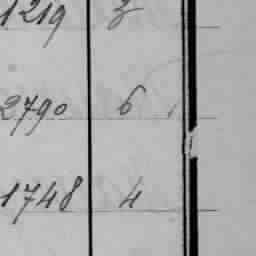 1219 3
2790 6
1748 4